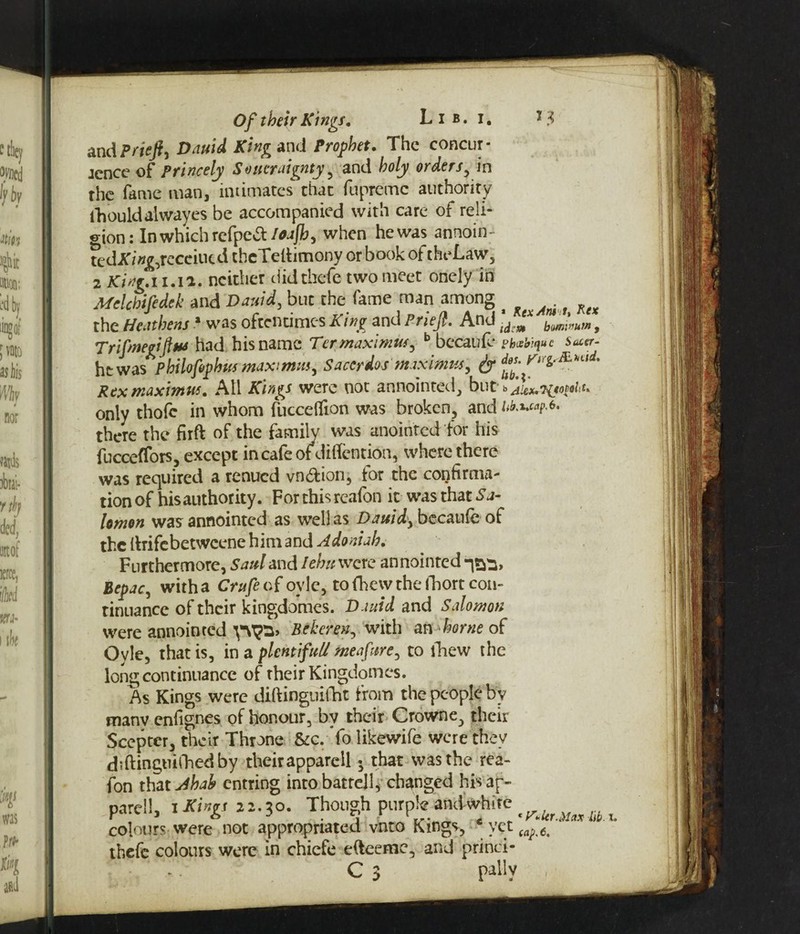 Of their Kings. LIB. 1. 13
and Priest, Dauid King and Prophet. The concur-
rence of Princely Soueraignty, and holy orders, in
the same man, intimates that supreme authority
should alwayes be accompanied with care of reli-
gion: In which respect Ioash, when he was annoin-
ted King, receiued the Testimony or book of the Law,
2 King. 11.12. neither did these two meet onely in
Melchisedek and Dauid, but the same man among
the Heathens ᵃ was oftentimes King and Priest. And
Trismegistus had his name Ter maximus, ᵇ because
he was Philosophus maximus, Sacerdos maximus, &
Rex maximus. All Kings were not annointed, but
only those in whom succession was broken, and
there the first of the family was anointed for his
successors, except in case of dissention, where there
was required a renued vnction, for the confirma-
tion of his authority. For this reason it was that Sa-
lomon was annointed as well as Dauid, because of
the strife betweene him and Adoniah.
Furthermore, Saul and Iehu were annointed בפך,
Bepac, with a Cruse of oyle, to shew the short con-
tinuance of their kingdomes. Dauid and Salomon
were annointed בקרן, Bekeren, with an horne of
Oyle, that is, in a plentifull measure, to shew the
long continuance of their Kingdomes.
As Kings were distinguisht from the people by
many ensignes of honour, by their Crowne, their
Scepter, their Throne &c. so likewise were they
distinguished by their apparell; that was the rea-
son that Ahab entring into battell, changed his ap-
parell, 1 Kings 22.30. Though purple and white
colours were not appropriated vnto Kings, ᶜ yet
these colours were in chiefe esteeme, and princi-
C 3 pally
ᵃ Rex Anius, Rex
idem hominum,
Phæbique Sacer-
dos. Virg. Æneid.
lib. 3.
ᵇ Alex. Neopolit.
lib. 2. cap. 6.
ᶜ Valer. Max lib. 1.
cap. 6.